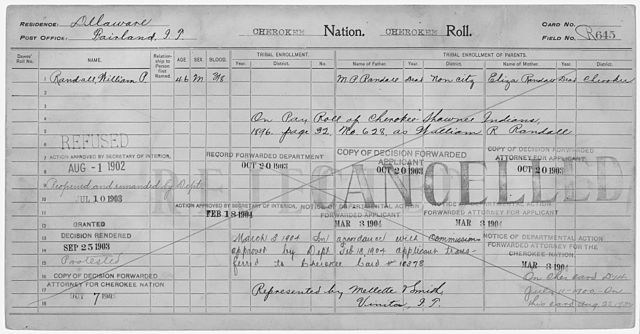 RESIDENCE: Dellaware
POST OFFICE: Fairland, I.T.
CHEROKEE Nation. CHEROKEE Roll.
CARD NO.
FIELD NO. R645
Dawes' Roll No. NAME. Relationship to Person first Named. AGE SEX BLOOD TRIBAL ENROLLMENT. TRIBAL ENROLLMENT OF PARENTS.
Year. District. No. Name of Father. Year. District. Name of Mother. Year. District.
1 Randall, William P. 46 M M P Randall Dead Non city Eliza Randall Dead Cherokee
On Pay Roll of Cherokee Shawnee Indians,
1896. page 32. No 628, as William R Randall
REFUSED
ACTION APPROVED BY SECRETARY OF INTERIOR,
AUG -1 1902
RECORD FORWARDED DEPARTMENT
OCT 20 1903
COPY OF DECISION FORWARDED
APPLICANT
OCT 20 1903
COPY OF DECISION FORWARDED
ATTORNEY FOR APPLICANT
OCT 20 1903
CANCELLED
Reopened and remanded by Dept.
JUL 10 1903
ACTION APPROVED BY SECRETARY OF INTERIOR,
FEB 18 1904
NOTICE OF DEPARTMENTAL ACTION
FORWARDED APPLICANT
MAR 3 1904
NOTICE OF DEPARTMENTAL ACTION
FORWARDED ATTORNEY FOR APPLICANT
MAR 3 1904
GRANTED
DECISION RENDERED
SEP 25 1903
Protested
March 3 1904 In accordance with Commissions
approved by Dept Feb 18, 1904 applicant trans-
ferred to Cherokee Card # 10373
NOTICE OF DEPARTMENTAL ACTION
FORWARDED ATTORNEY FOR THE
CHEROKEE NATION
MAR 3 1904
COPY OF DECISION FORWARDED
ATTORNEY FOR CHEROKEE NATION
OCT 7 1903
Represented by Mellette & Smith,
Vinita, I.T.
On Cher card D
this card Aug 22